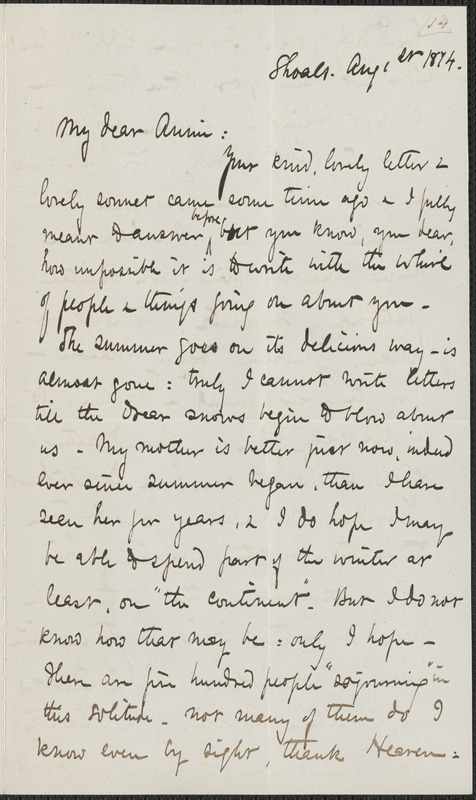 (14)
Shoals. Aug 1st 1874.
My dear Annie:
Your kind, lovely letter &
lovely sonnet came some time ago & I fully
meant to answer before, but you know, you dear,
how impossible it is to write with the whirl
of people & things going on about you -
The summer goes on its delicious way - is
almost gone: truly I cannot write letters
till the drear snows begin to blow about
us - My mother is better just now, indeed
ever since summer began, than I have
seen her for years, & I do hope I may
be able to spend part of the winter at
least, on "the continent". But I do not
know how that may be: only I hope -
There are five hundred people "sojourning" in
this solitude - not many of them do I
know even by sight, thank Heaven: